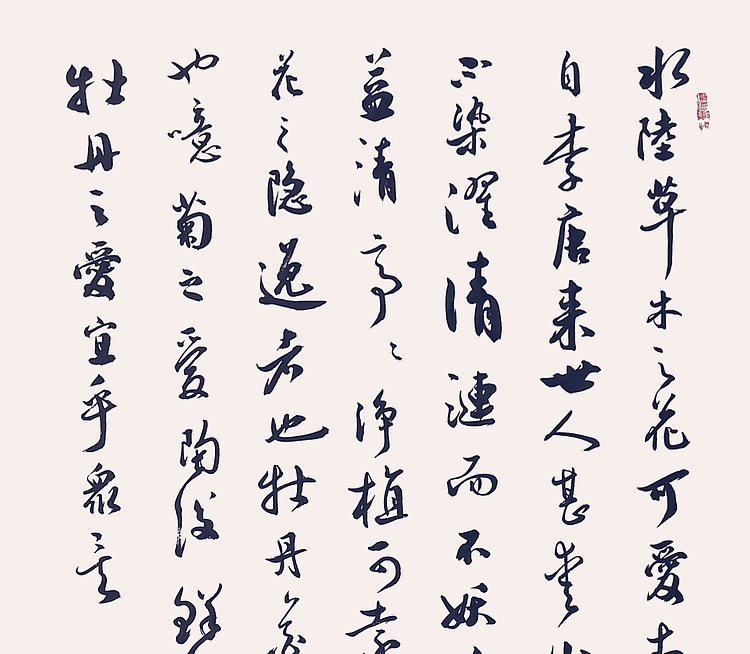 水陸草木之花可愛
自李唐来世人甚愛
不染濯清漣而不妖
益清亭〻浄植可遠
花之隐逸者也牡丹
也噫菊之爱陶後鲜
牡丹之愛宜乎衆矣